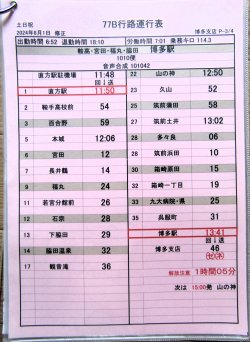 土日祝
77B行路運行表
2024年6月1日 修正
博多支店 P-3/4
出勤時間 6:52 退勤時間 18:10
労働時間 7:01 乗務キロ 114.3
鞍高・宮田・福丸・脇田 博多駅
1010便
音声合成 101042
直方駅駐機場 11:48
回1送
1 直方駅 11:50
2 鞍手高校前 54
3 百合野 59
5 本城 12:06
6 宮田 12
7 長井鶴 14
9 福丸 24
11 若宮分館前 26
12 石宗 28
13 下脇田 29
14 脇田温泉 32
17 観音滝 36
22 山の神 12:50
23 久山 52
25 筑前蒲田 58
27 筑前土井 13:02
28 多々良 06
28 筑前浜田 10
30 箱崎原田 15
30 箱崎一丁目 19
33 九大病院・県 25
35 呉服町 31
博多駅 13:41
回1送
博多支店 46
解放注意 1時間05分
次は 15:00発 山の神